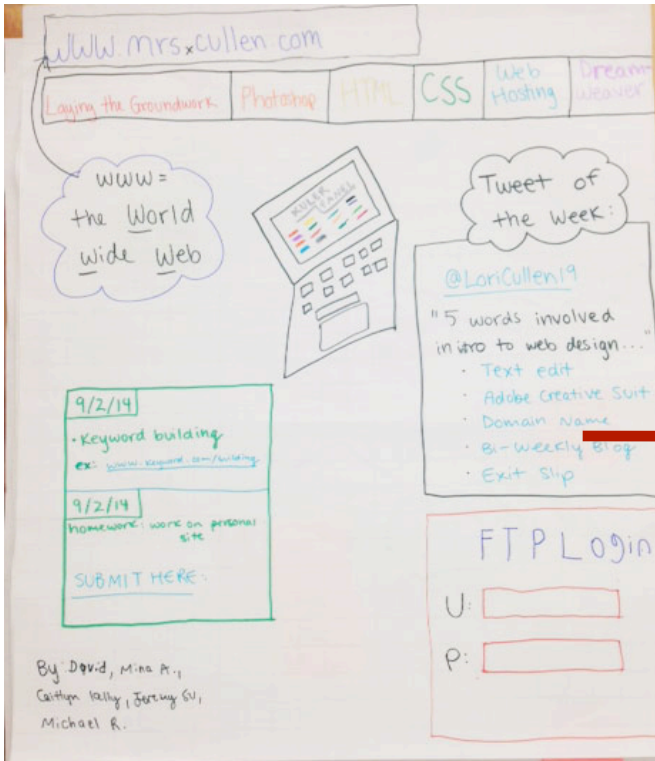 www.mrsxcullen.com
Laying the Groundwork
Photoshop
HTML
CSS
Web
Hosting
Dream-
weaver
www=
the World
Wide Web
KULER
PANEL
Tweet of
the week:
@LoriCullen19
"5 words involved
in intro to web design..."
· Text edit
· Adobe Creative Suit
· Domain Name
· Bi-Weekly Blog
· Exit Slip
9/2/14
· Keyword building
ex: www.keyword.com/building
9/2/14
homework: work on personal
site
SUBMIT HERE:
FTP Login
U:
P:
By: David, Mina A.,
Caitlyn lally, Jeremy SU,
Michael R.